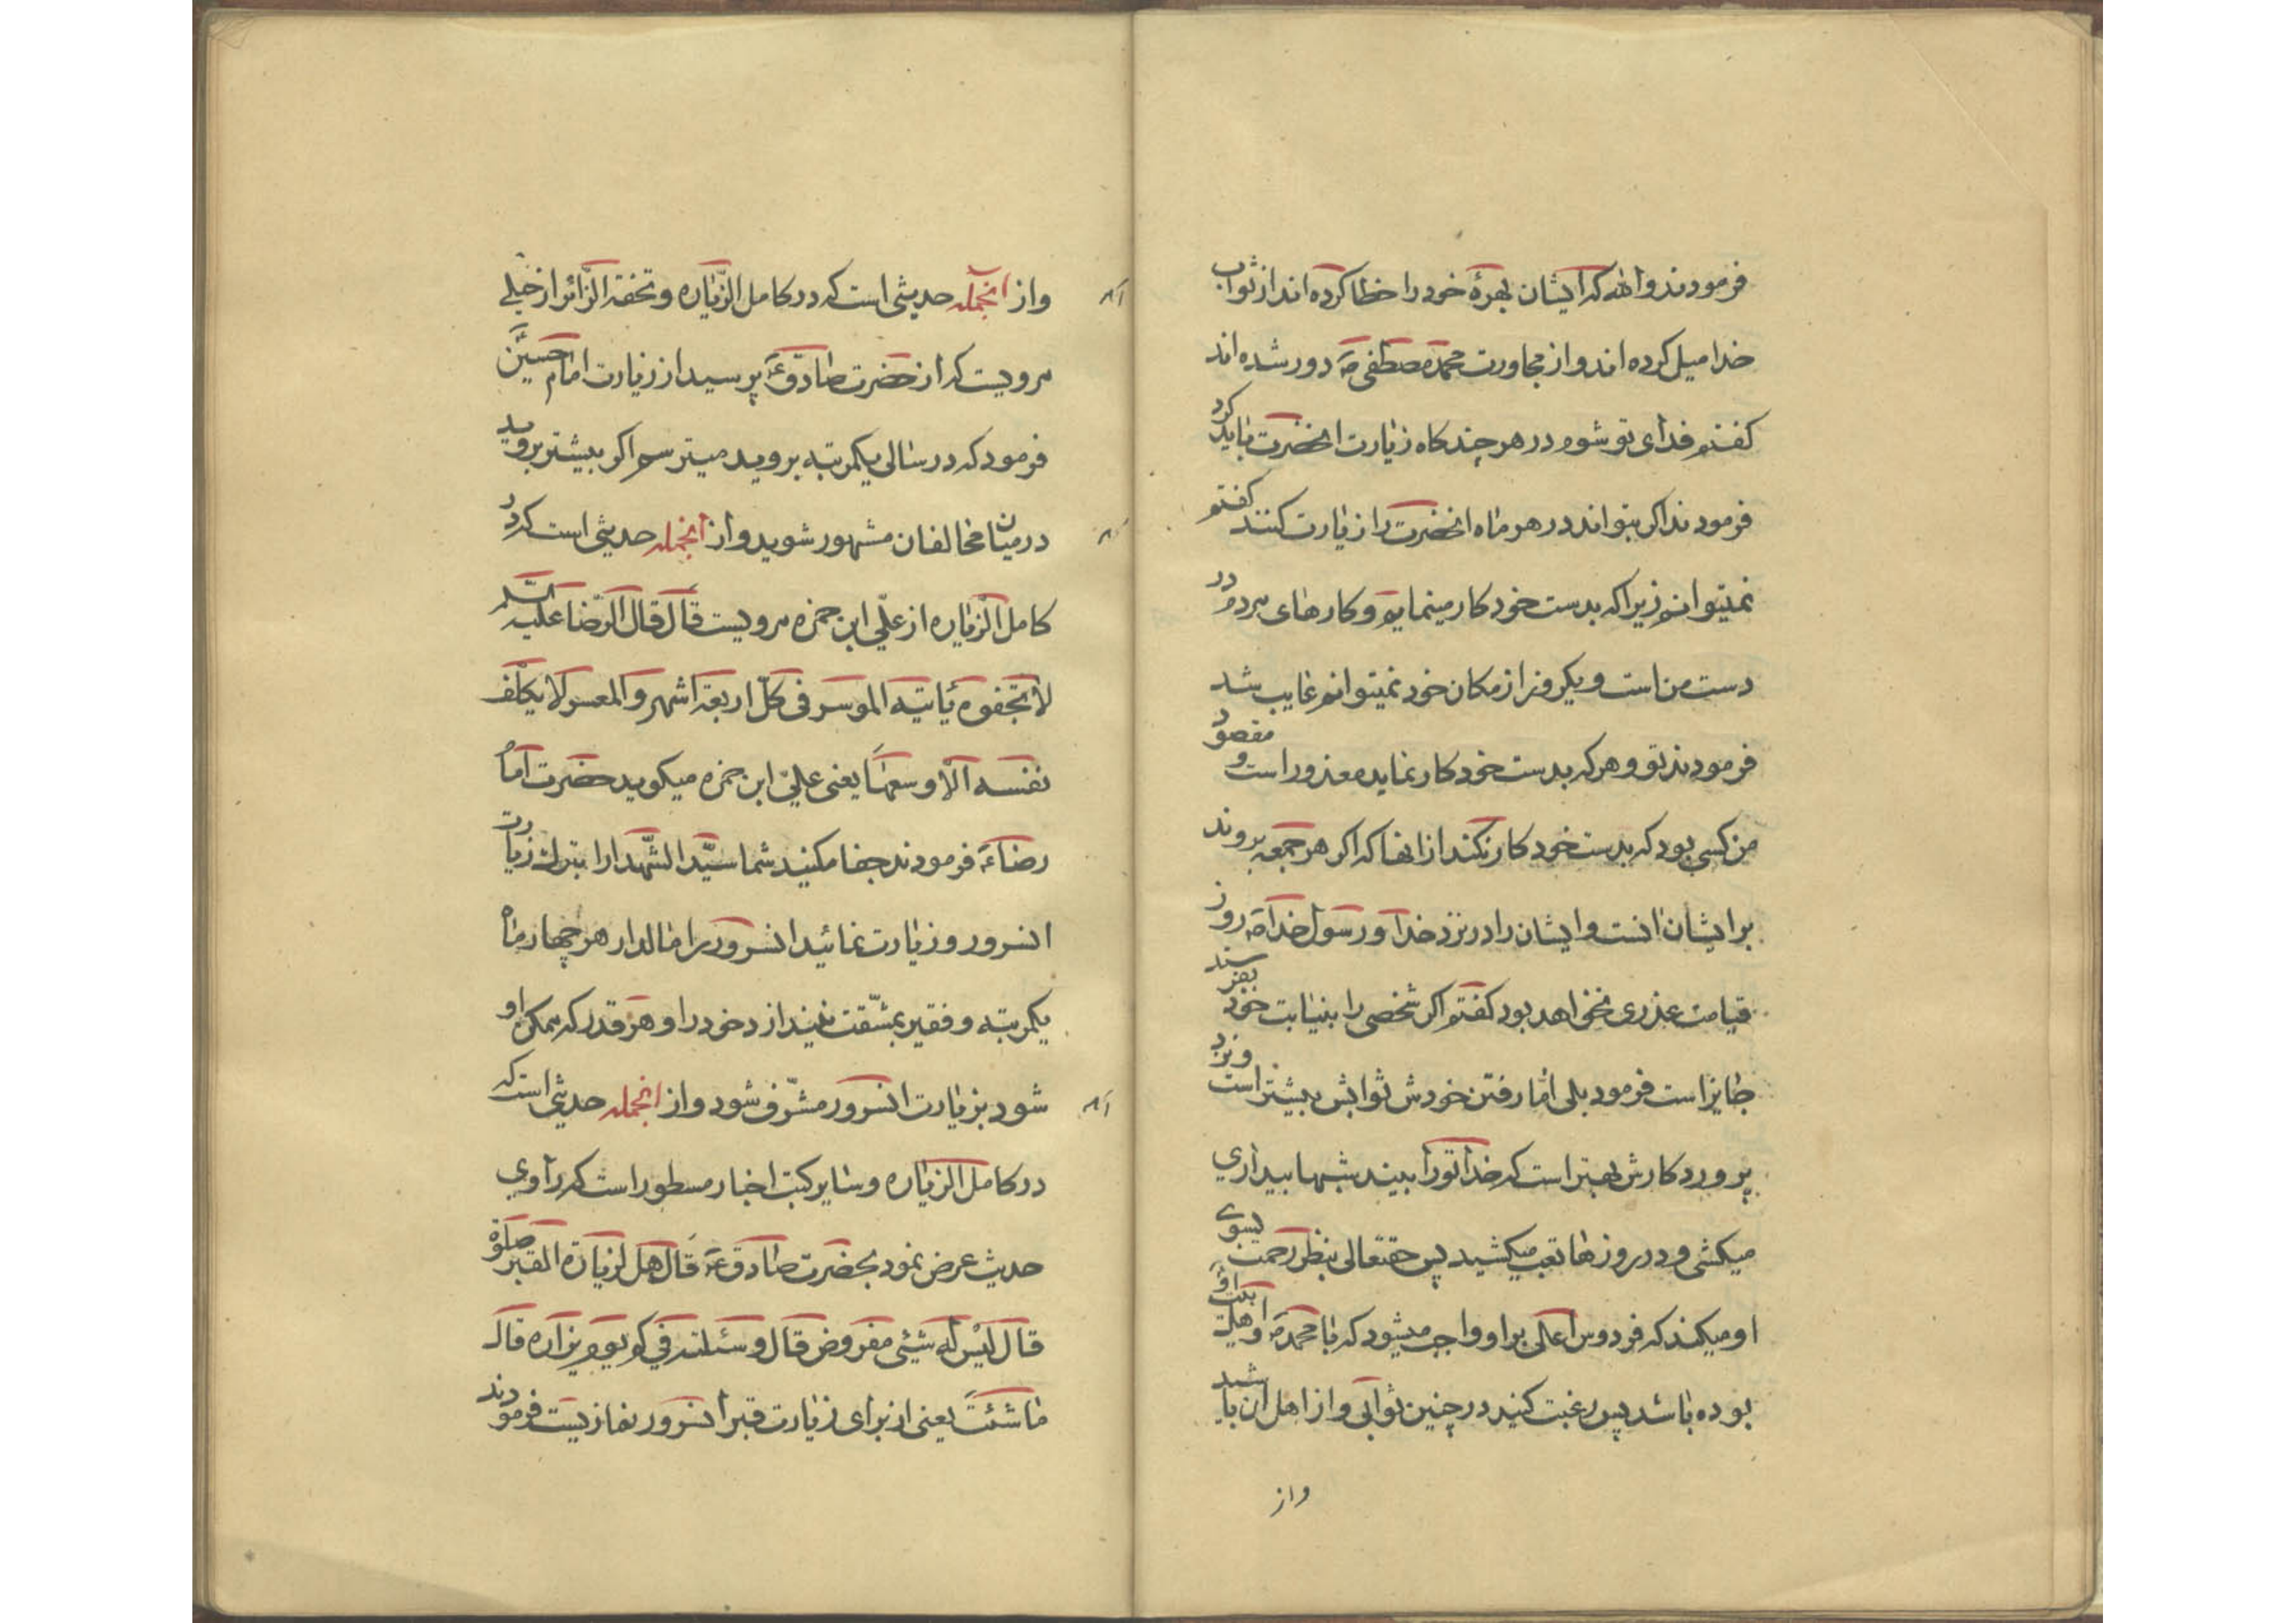 فرمودند والله که ایشان بهرهٔ خود را خطا کرده اند از ثواب
خدا میل کرده اند و از مجاورت محمد مصطفی ص دور شده اند
کفتم فدای تو شوم در هر چند کاه زیارت انحضرت باید کرد
فرمودند اکر بتواند در هر ماه انحضرت را زیارت کنند کفتم
نمیتوانم زیرا که بدست خود کار مینمایم و کارهای مردم در
دست من است و یکروز از مکان خود نمیتوانم غایب شد
فرمودند تو و هر که بدست خود کار نماید معذور است و مقصود
من کسی بود که بدست خود کار نکند از انها که اکر هر جمعه بروند
بر ایشان انست و ایشان را در نزد خدا و رسول خدا ص روز
قیامت عذری نخواهد بود کفتم اکر شخصی را بنیابت خود بفرستد
جایز است فرمود بلی اما رفتن خودش ثوابش بیشتر است و نزد
پروردکارش بهتر است که خدا تو را بیند شبها بیداری
میکشی و در روزها تعب میکشید پس حقتعالی بنظر رحمت بسوی
او میکند که فردوس اعلی بر او واجب میشود که با محمد ص و اهلبیت او
بوده باشد پس رغبت کنید در چنین ثوابی و از اهل ان باشید
واز
واز انجمله حدیثی است که در کامل الزیاره و تحفة الزائر از حلبی
مرویست که از حضرت صادق ع پرسید از زیارت امام حسین
فرمود که در سالی یکمرتبه بروید میترسم اکر بیشتر بروید
در میان مخالفان مشهور شوید و از انجمله حدیثی است که در
کامل الزیاره از علی ابن حمزه مرویست قال قال الرضا علیه السلم
لا تجفوه یاتیه الموسر فی کل اربعة اشهر و المعسر لا یکلف
نفسه الا وسعها یعنی علی ابن حمزه میکوید حضرت امام
رضا ع فرمودند جفا مکنید شما سید الشهدا را بترک زیارت
انسرور و زیارت نمائید انسرور را مالدار هر چهار ماه
یکمرتبه و فقیر بمشقت نیندازد خود را و هر قدر که ممکن او
شود بزیارت انسرور مشرف شود و از انجمله حدیثی است که
در کامل الزیاره و سایر کتب اخبار مسطور است که راوی
حدیث عرض نمود بحضرت صادق ع قال هل لزیارة القبر صلوة
قال لیس له شیئی مفروض قال و سئلته فی کم یوم یزاره قال
ما شئت یعنی از برای زیارت قبر انسرور نمازیست فرمودند